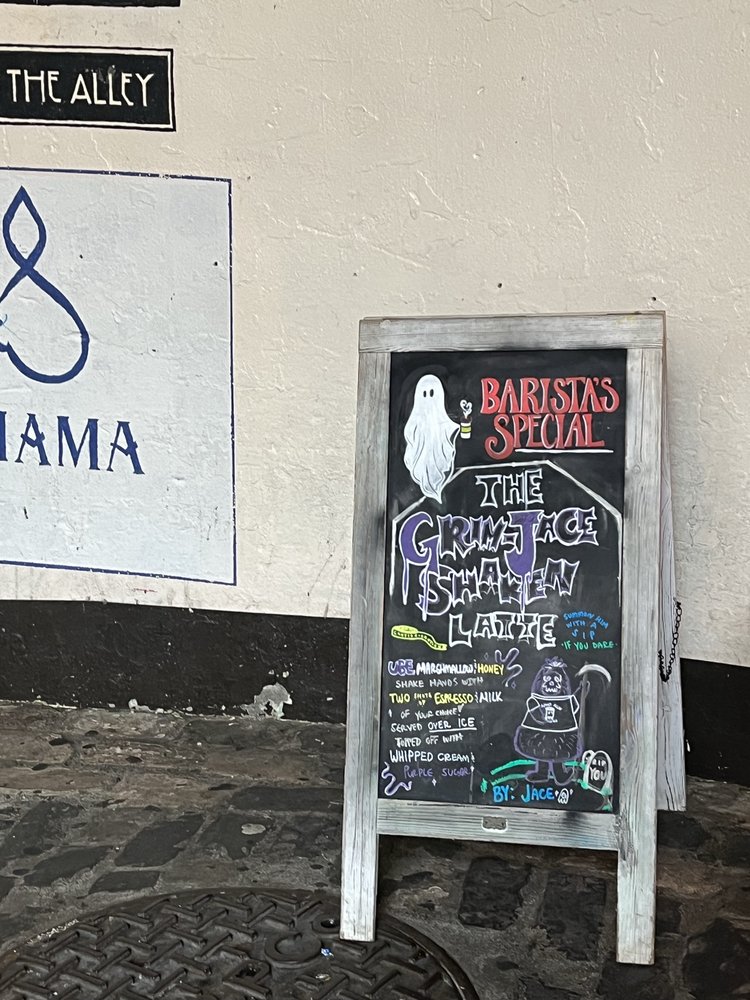 THE ALLEY
MAMA
BARISTA'S
SPECIAL
THE
GRIM-JACE
SHAKEN
LATTE
SUMMON HIM
WITH A
SIP
IF YOU DARE
UBE MARSHMALLOW & HONEY
SHAKE HANDS WITH
TWO SHOTS OF ESPRESSO & MILK
OF YOUR CHOICE!
SERVED OVER ICE
TOPPED OFF WITH
WHIPPED CREAM &
PURPLE SUGAR
RIP
YOU
BY: JACE